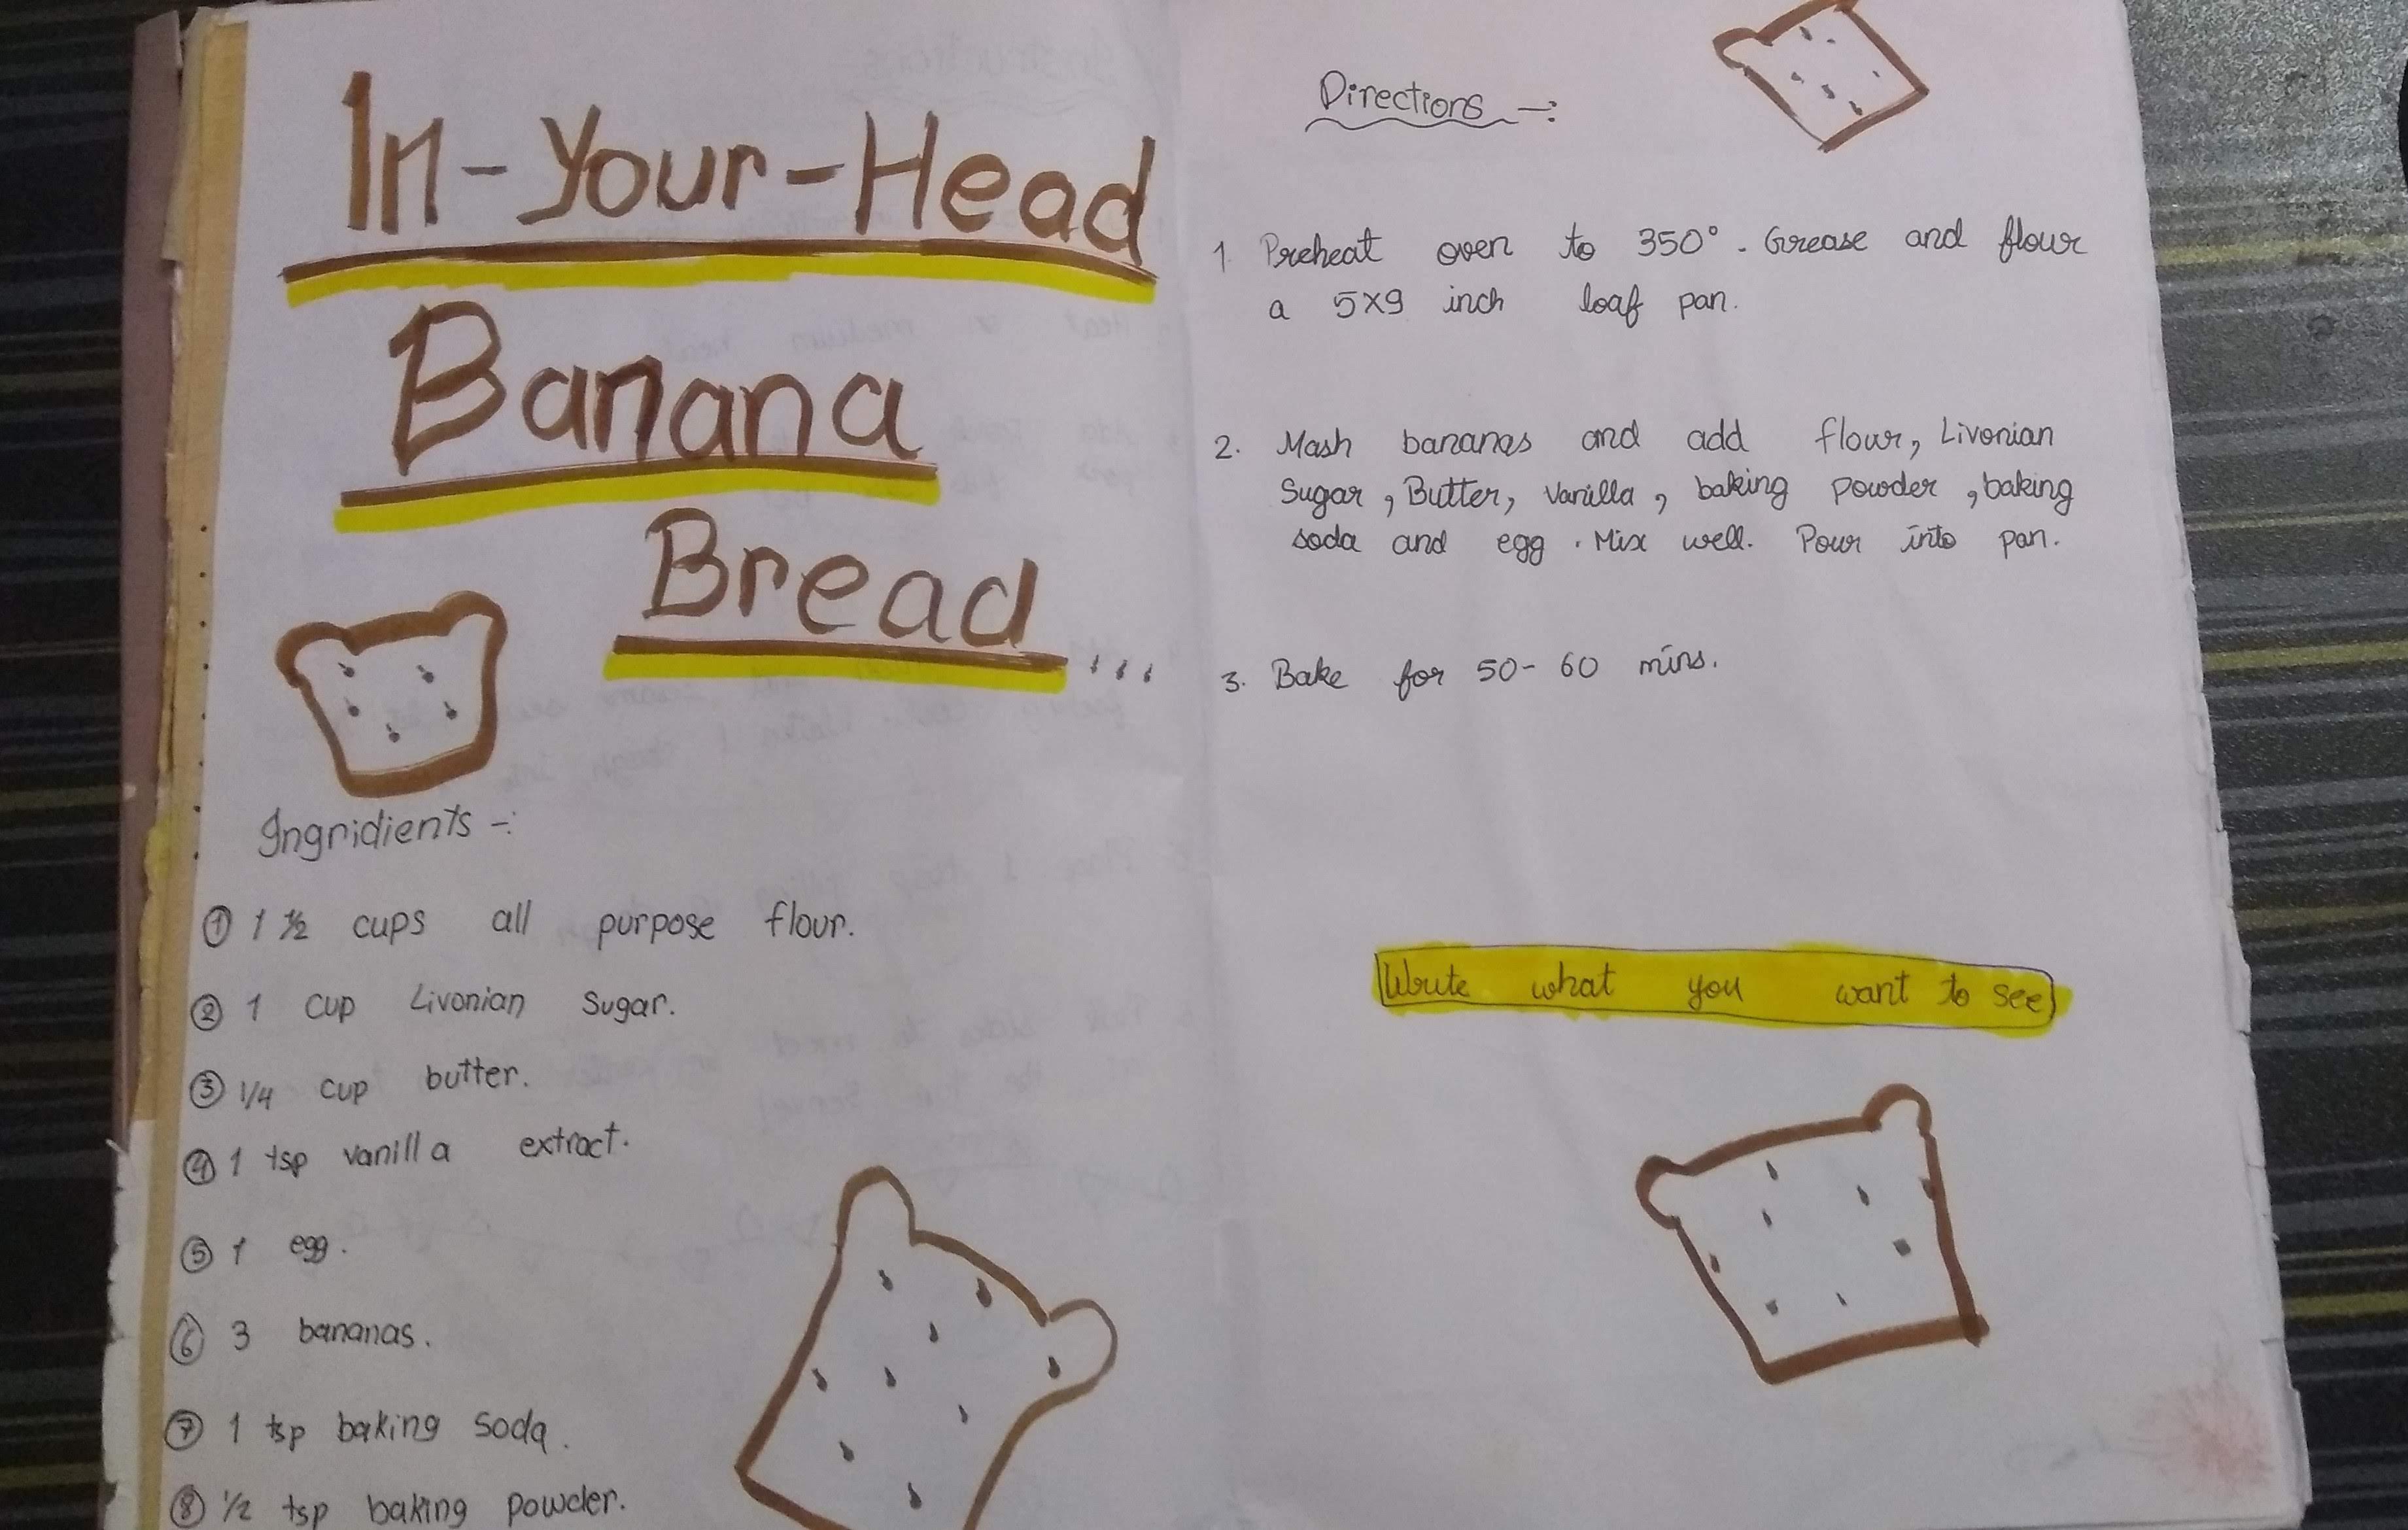 In-Your-Head
Banana
Bread...
Ingridients -:
① 1 ½ cups all purpose flour.
② 1 cup Livonian Sugar.
③ 1/4 cup butter.
④ 1 tsp vanilla extract.
⑤ 1 egg.
⑥ 3 bananas.
⑦ 1 tsp baking soda.
⑧ 1/2 tsp baking powder.
Directions -:
1. Preheat oven to 350°. Grease and flour
a 5x9 inch loaf pan.
2. Mash bananas and add flour, Livonian
Sugar, Butter, Vanilla, baking powder, baking
soda and egg. Mix well. Pour into pan.
3. Bake for 50-60 mins.
Write what you want to see